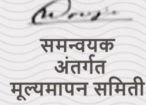 समन्वयक
अंतर्गत
मूल्यमापन समिती